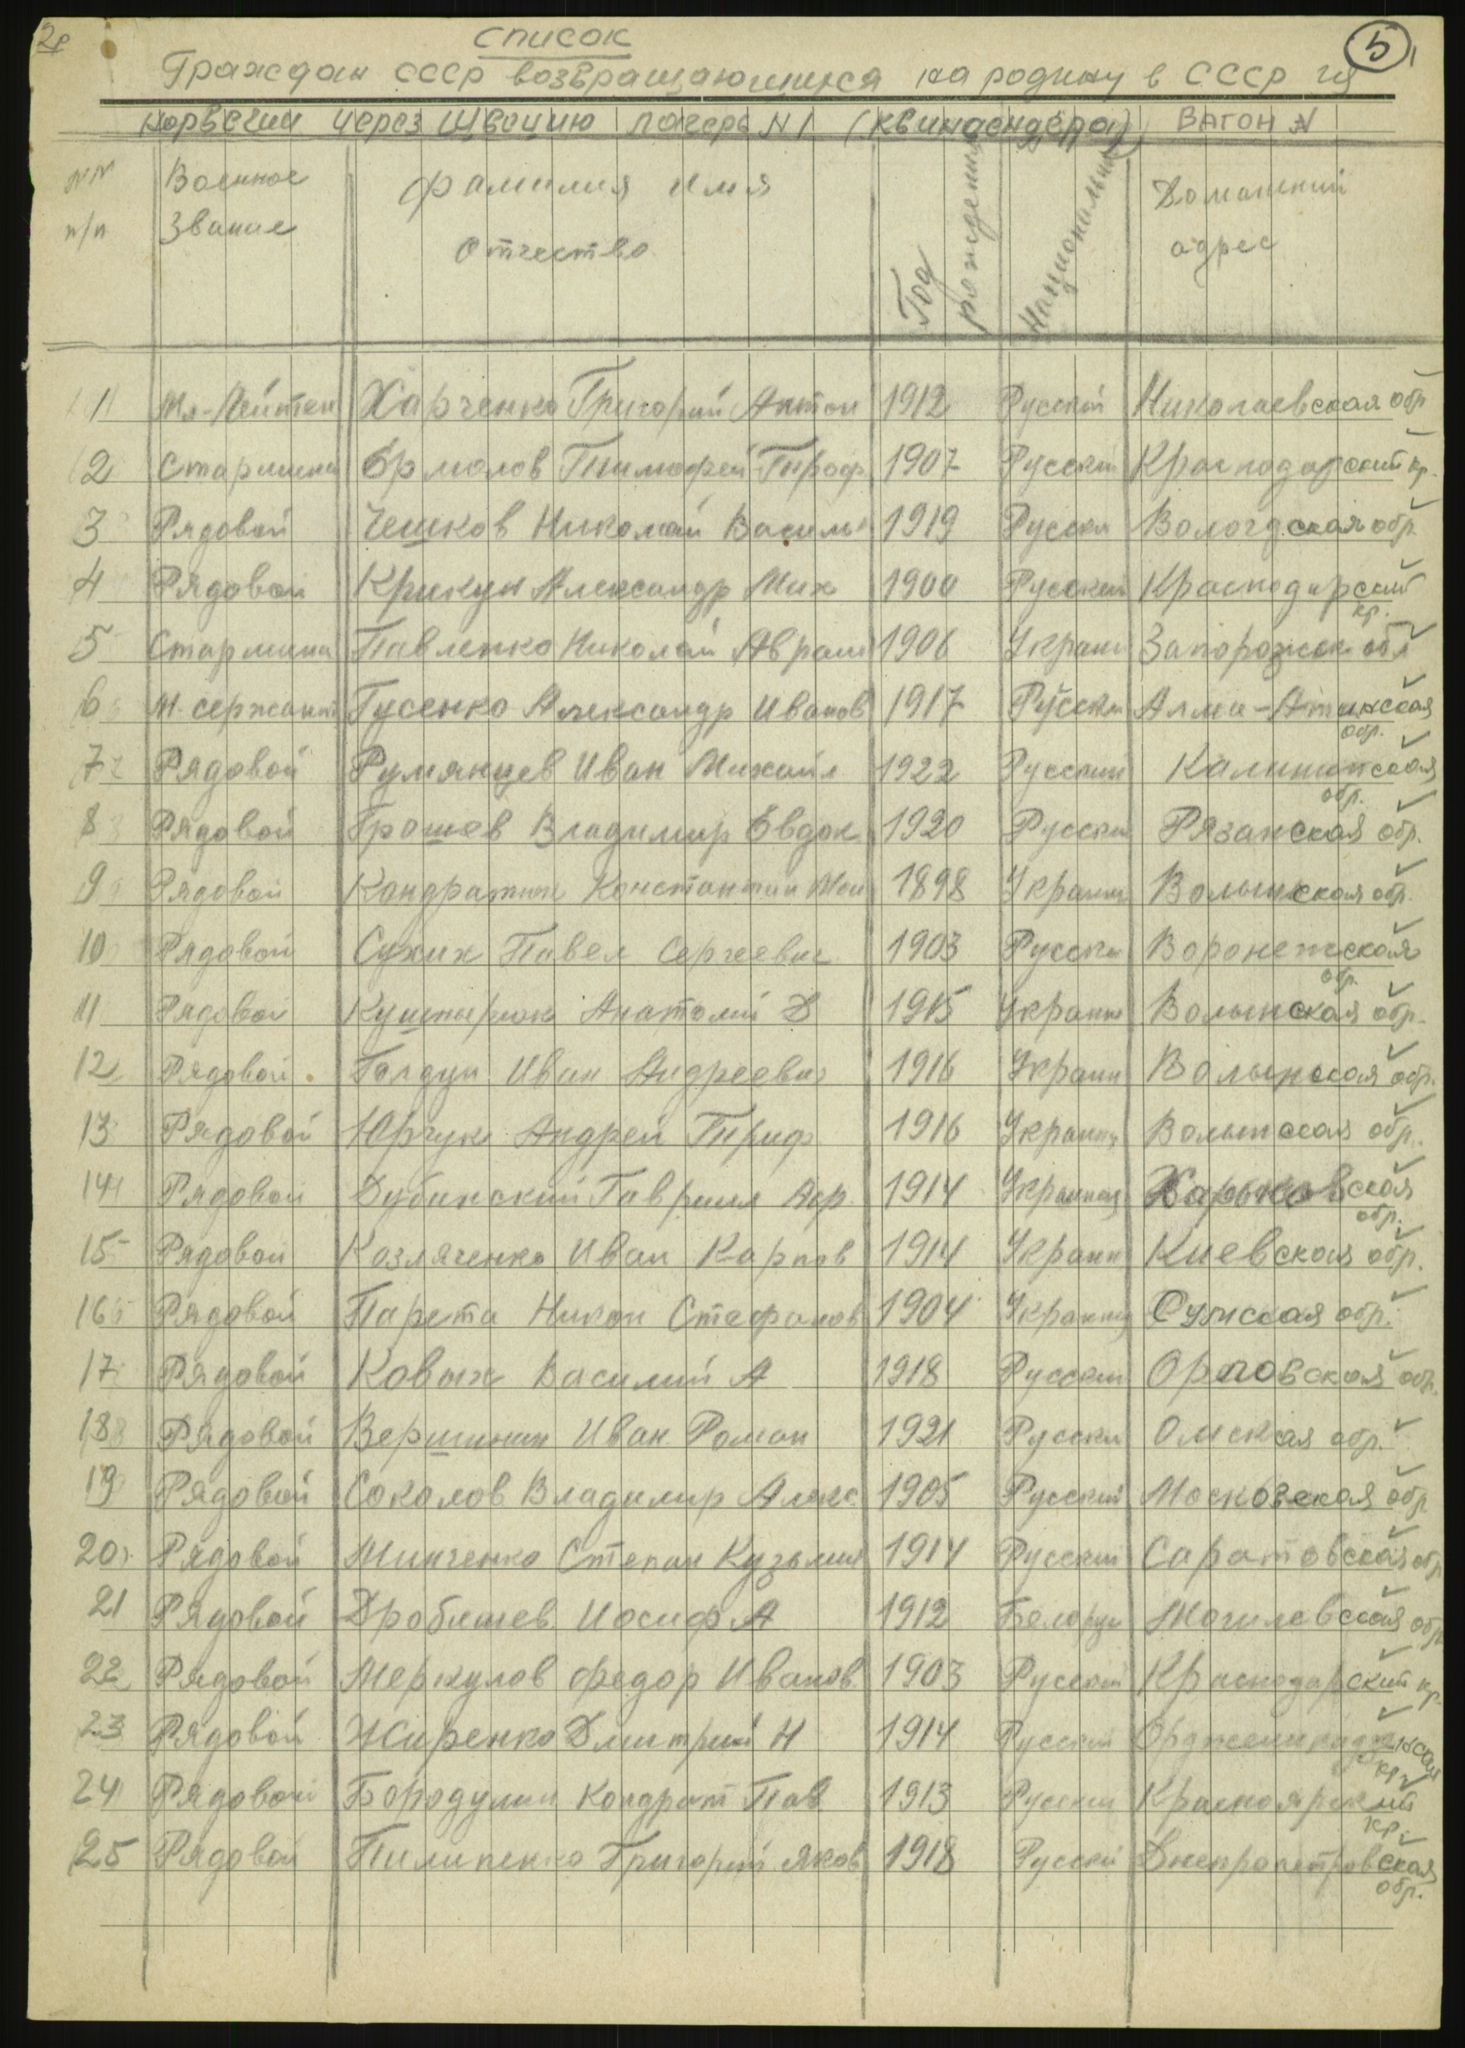 2р
5
Список
Граждан СССР возвращающихся на родину в СССР из
Норвегии через Швецию лагерь N 1 (Квинаендера) Вагон N
NN п/п Военное звание Фамилия имя отчество Год рождения Национальн Домашний адрес
1 Мл-Лейтен Харченко Григорий Антон 1912 Русский Николаевская обр
2 Старшина Ермолов Тимофей Троф 1907 Русский Краснодарский кр.
3 Рядовой Чешков Николай Василь 1919 Русски Вологдская обр.
4 Рядовой Крикун Александр Мих 1900 Русский Краснодарский кр.
5 Старшина Павленко Николай Аврам 1906 Украин Запорожск обл
6 М. сержант Гусенко Александр Иванов 1917 Русски Алма-Атинская обр.
7 Рядовой Румянцев Иван Михайл 1922 Русский Калининская обр.
8 Рядовой Грошев Владимир Евдок 1920 Русски Рязанская обр.
9 Рядовой Кондратюк Константин 1898 Украин Волынская обр.
10 Рядовой Сухих Павел Сергеевич 1903 Русски Воронежская обр.
11 Рядовой Кушнырюк Анатолий Д 1915 Украин Волынская обр.
12 Рядовой Голдун Иван Андреевич 1916 Украин Волынская обр.
13 Рядовой Юрчук Андрей Триф 1916 Украинц Волынская обр.
14 Рядовой Дубинский Гаврилл 1914 Харьковской обр.
15 Рядовой Козляченко Иван Карпов 1914 Украин Киевская обр.
16 Рядовой Парета Никон Стефанов 1904 Украинц Сумская обр.
17 Рядовой Ковых Василий А 1918 Русский Орловской обр.
18 Рядовой Вершинин Иван Роман 1921 Русски Омская обр.
19 Рядовой Соколов Владимир Алекс 1905 Русский Московская обр
20 Рядовой Минченко Степан Кузьмич 1914 Русский Саратовская обр
21 Рядовой Дробышев Иосиф А 1912 Белорус Могилевская обр
22 Рядовой Меркулов Федор Иванов 1903 Русский Краснодарский кр.
23 Рядовой Жиренко Дмитрий Н 1914 Русский кр.
24 Рядовой Бородулин Кондрат Пав 1913 Русский Красноярский кр.
25 Рядовой Пилипенко Григорий Яков 1918 Русский Днепропетровская обр.